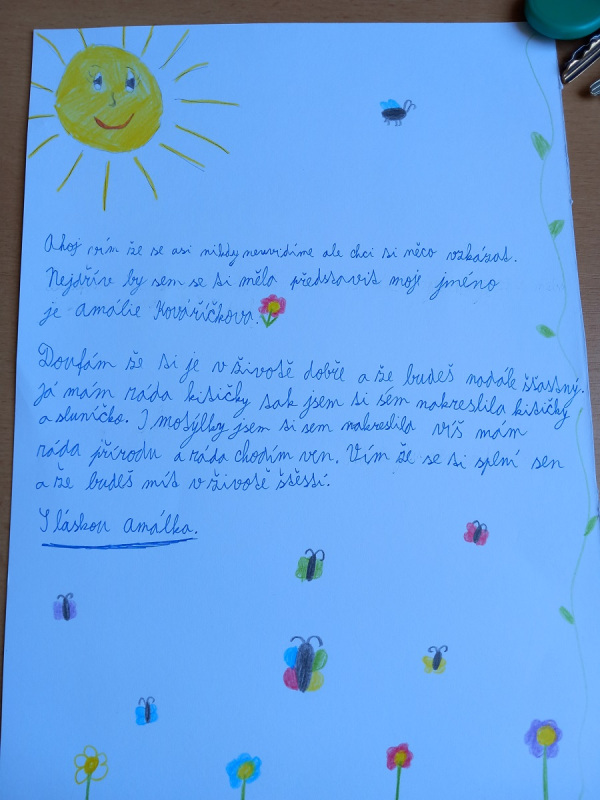 Ahoj vím že se asi nikdy neuvidíme ale chci ti něco vzkázat.
Nejdříve by sem se ti měla představit moje jméno
je Amálie Kováříčkova.
Doufám že ti je v životě dobře a že budeš nadále šťastný.
Já mám ráda kitičky tak jsem ti sem nakreslila kitičky
a sluníčko. I motýlky jsem ti sem nakreslila víš mám
ráda přírodu a ráda chodím ven. Vím že se ti splní sen
a že budeš mít v životě štěstí.
S láskou Amálka.